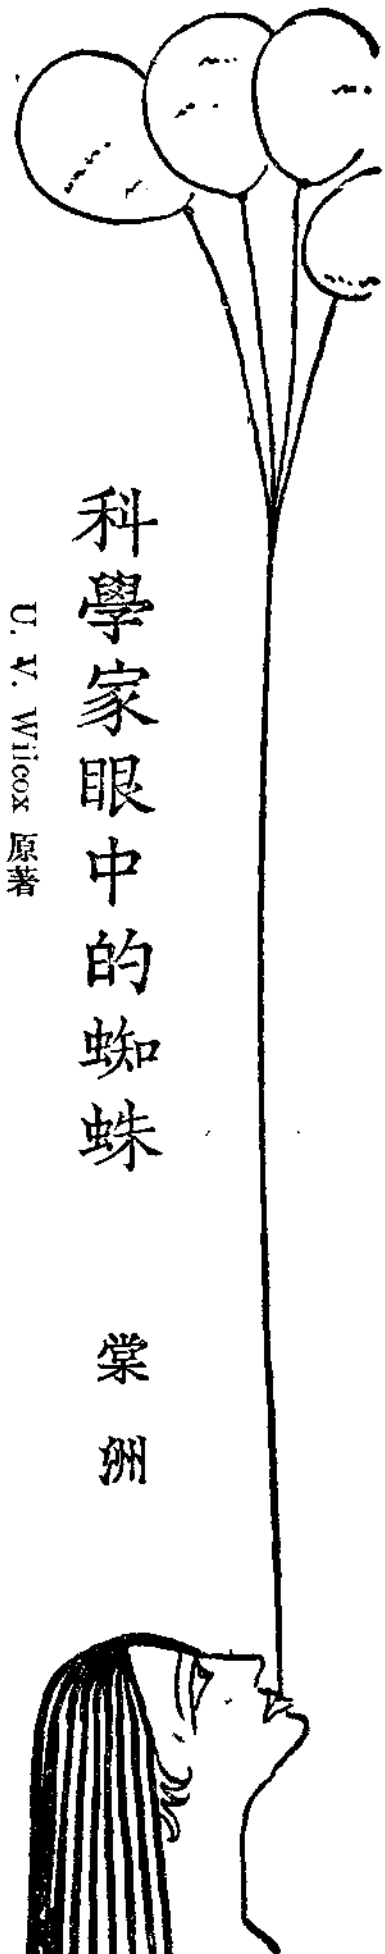 科學家眼中的蜘蛛
棠洲
U. V. Wilcox 原著